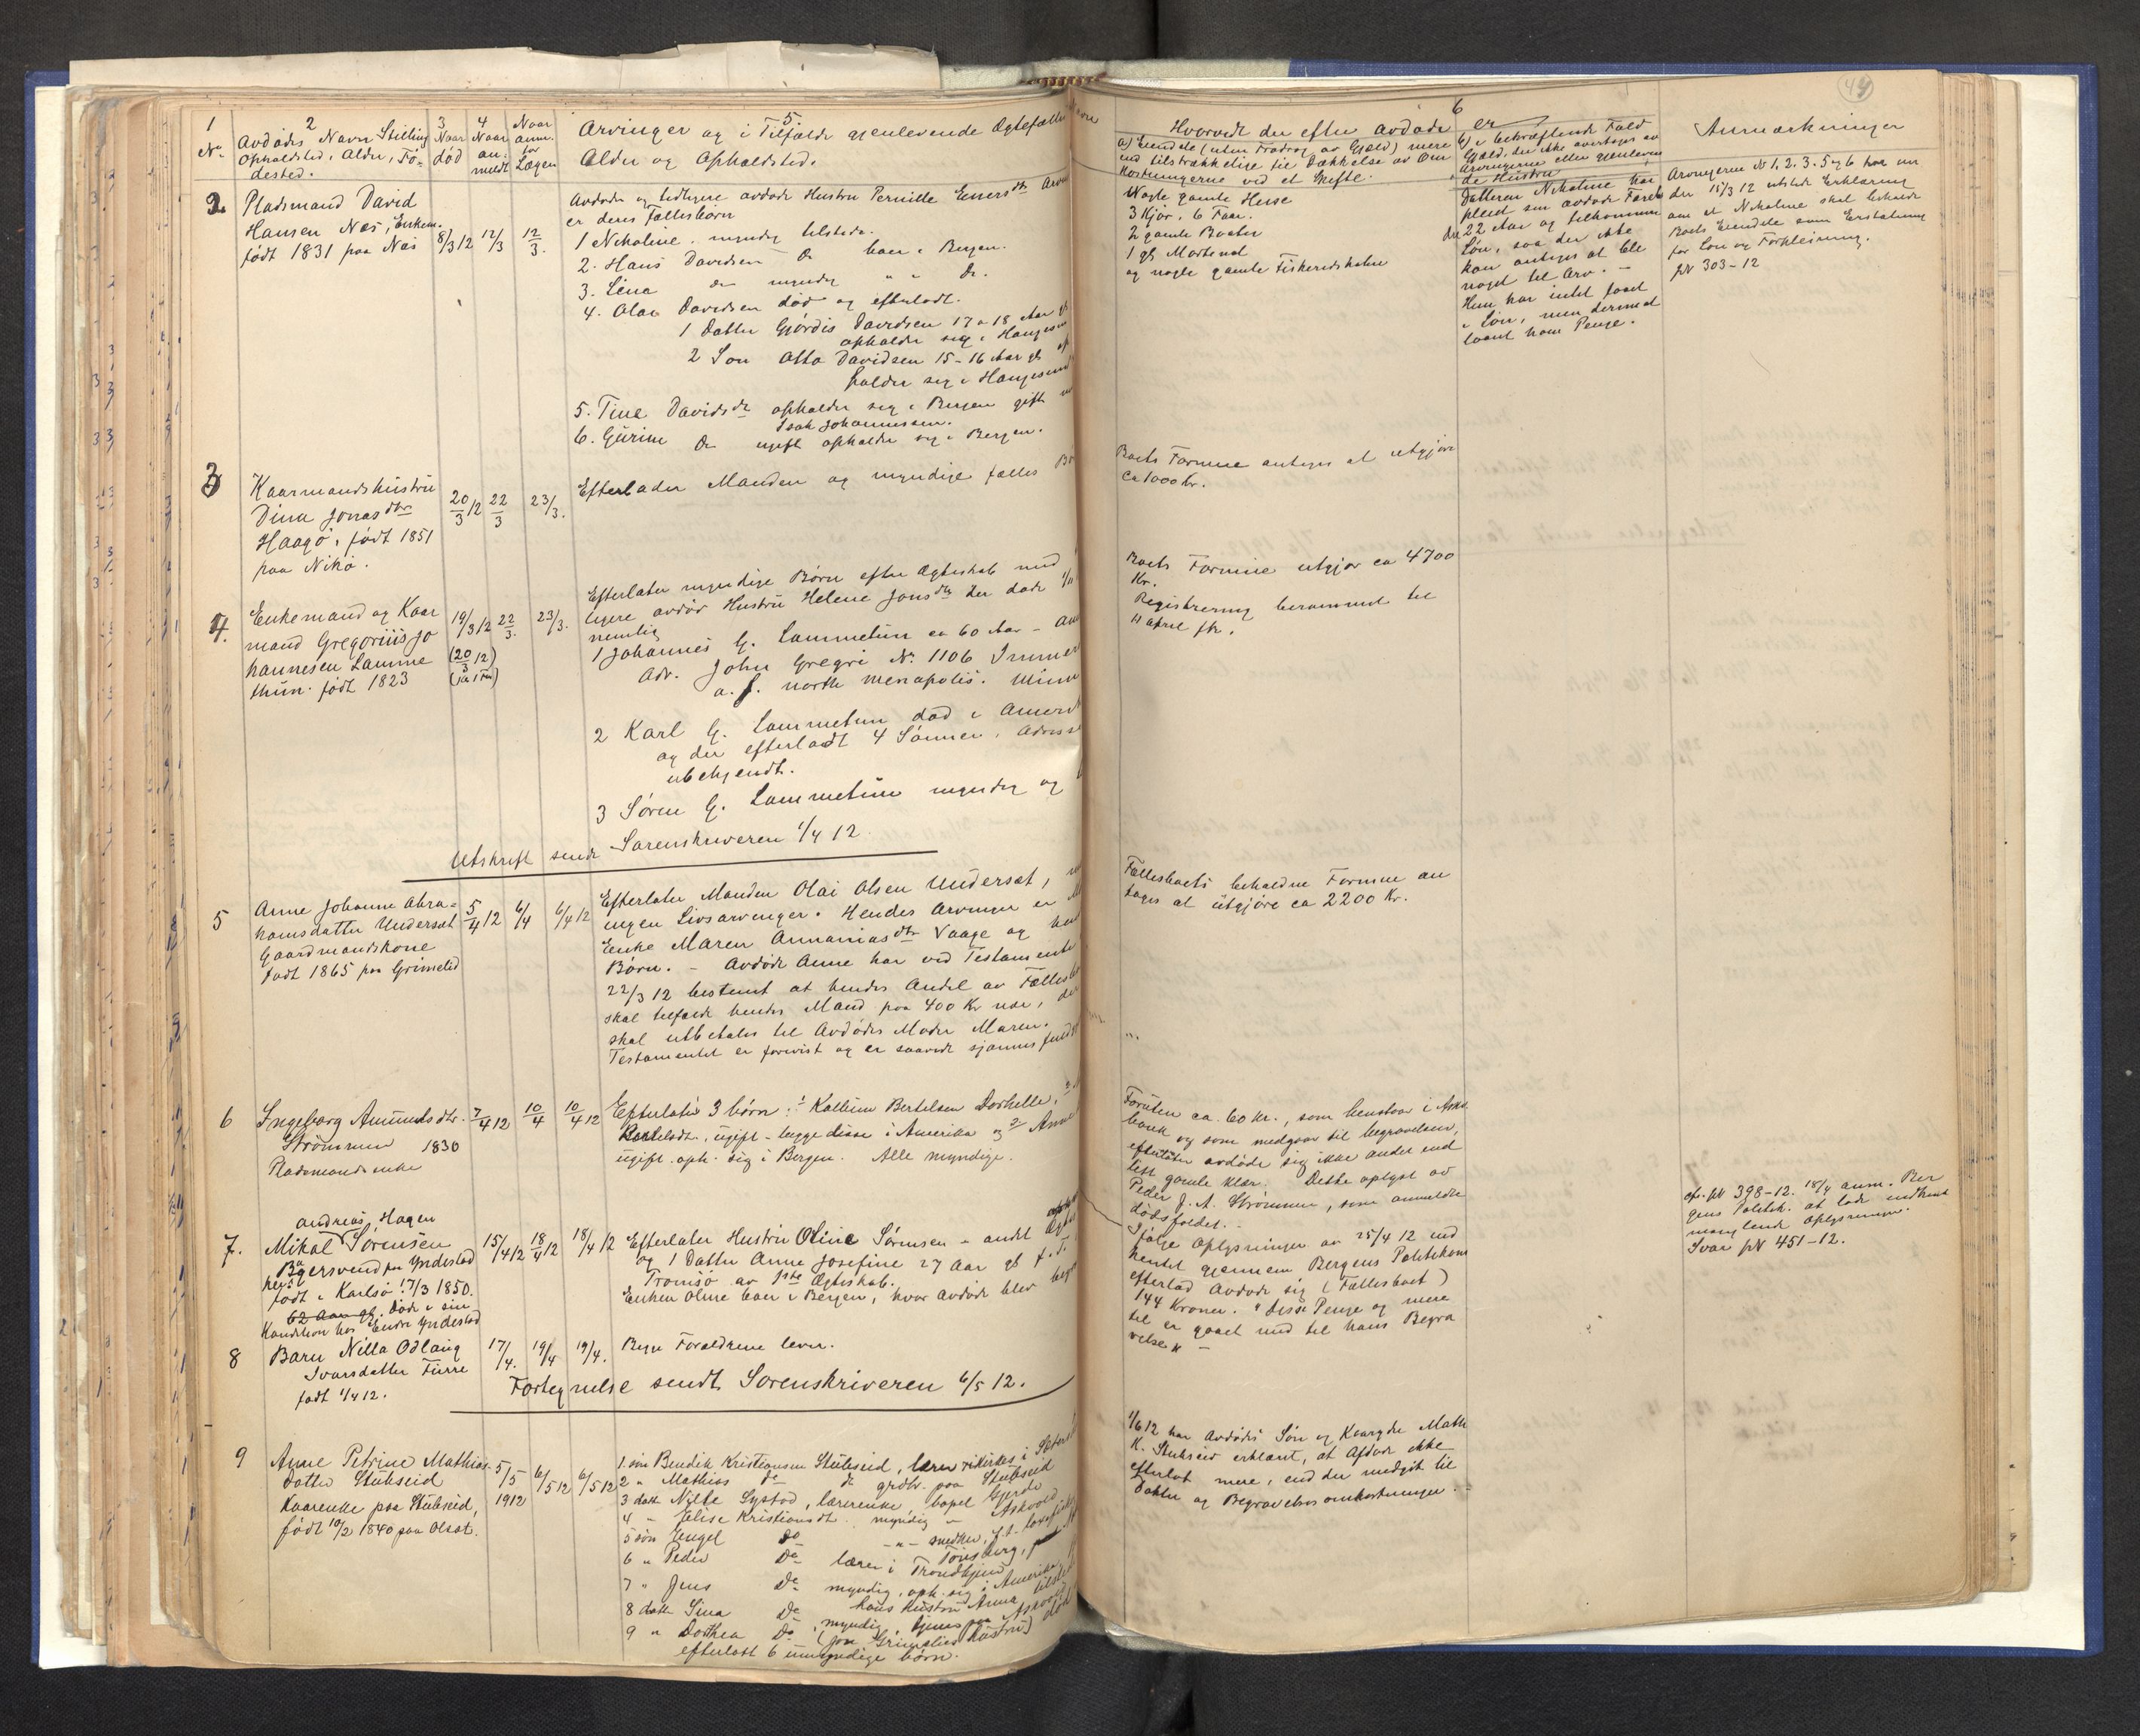 44
1
No
2
Avdødes Navn Stilling
Opholdsted, Alder, Fø-
dested.
3
Naar
død
4
Naar
an-
meldt
Naar
anm.
for
Lægen
5.
Arvinger og i Tilfælde gjenlevende Ægtefælle
Alder og Opholdsted.
6
Hvorvidt der efter avdøde er
a) Eiendele (uten Fradrag av Gjæld) mere
end tilstrækkelige til Dækkelse av Om
kostningerne ved et Skifte.
b) i bekræftende Fald
Gjæld, der ikke overtages av
Arvingerne eller gjenleven
de Hustru
Anmærkninger
2
Pladsmand David
Hansen Næs, Enkem.
født 1831 paa Næs
8/3 12
12/3
12/3.
Avdøde og tidligere avdøde Hustru Pernille Eners dtr
er deres Fællesbørn
1 Nikoline. myndig tilstede.
2. Hans Davidsen Do boer i Bergen.
3. Lina Do myndig " " Do.
4. Olai Davidsen død og efterladt.
1 Datter Gjørdis Davidsen 17 a 18 Aar gl
opholder sig i Haugesun
2 Søn Otto Davidsen 15-16 Aar gl op
holder sig i Haugesund
5. Tine Davidsdr opholder sig i Bergen gift
Isak Johannessen.
6. Gurine Do ugift opholder sig i Bergen.
Nogle gamle Huse
3 Kjør, 6 Faar.
2 gamle Baater
1 gl
og nogle gamle Fiskeredskaber
Datteren Nikoline har
pleiet sin avdøde Far
22 Aar og tilkommer
Løn, saa der ikke
kan antages at bli
noget til Arv. -
Hun har intet faaet
i Løn, men derimod
laant ham Penge.
Arvingerne No 1, 2. 3. 5 og 6 har un
der 15/3 12 utstedt Erklæring
om at Nikoline skal beholde
Boets Eiendele som Erstatning
for Løn og Forpleining.
pN 303-12
3
Kaarmandshustru
Dina Jonas dtr
Haagø, født 1851
paa Nikø.
20/3 12
22/3
23/3.
Efterlader Manden og myndige fælles
Boets Formue antages at utgjøre
ca 1000 kr.
4.
Enkemand og Kaar
mand Gregoriüs Jo
hannesen Lamme
thun. født 1823
19/3 12
(20/3 12)
22/3.
23/3.
Efterlater myndige Børn efter Ægteskab med
ligere avdød Hustru Helene Jons dtr der døde
nemlig
1 Johannes G. Lammetun ca 60 Aar -
Adr. John Gregri No. 1106
north menapolis.
2 Karl G. Lammetun død i Ameri
og der efterladt 4 Sønner. Adresse
ubekjendt.
3 Søren G. Lammetun myndig og
Utskrift sendt Sorenskriveren 1/4 12.
Boets Formue utgjør ca 4700
Kr.
Registrering berammet til
11 april ffr.
5
Anne Johanne Abra-
hamsdatter Underset
Gaardmandskone
født 1865 paa Grimelid
5/4 12
6/4
6/4 12
Efterlater Manden Olai Olsen Underset,
ingen Livsarvinger. Hendes Arvinger er
Enke Maren Annanias dtr Vaage og
Børn. - Avdøde Anne har ved Testamente
22/3 12 bestemt at hendes Andel av Fælles
skal tilfalde hendes Mand paa 400 Kr nær,
skal utbetales til Avdødes Moder Maren.
Testamentet er forevist og er saavidt sjønnes
Fællesboets beholdne Formue an
tages at utgjøre ca 2200 Kr.
6
Ingeborg Amundsdtr.
Strømmen 1830
Pladsmandsenke
7/4 12
10/4
10/4 12
Efterlater 3 børn: 1 Kathum Bertelsen Dorhelle,
Bertelsdr., ugift - begge disse i Amerika og 3 Anne
ugift oph. sig i Bergen. Alle myndige.
Foruten ca. 60 kr., som henstaar i Askv.
bank og som medgaar til begravelsen,
efterlater avdøde sig ikke andet end
litt gamle klær. Dette oplyst av
Peder J. A. Strømmen, som anmeldte
dødsfaldet. -
7.
Andreas Hagen
Mikal Sørensen
Bagersvend paa Yndestad
født i Karlsø 17/3 1850.
62 Aar gl. Døde i sin
Kondition hos Endre Yndestad
15/4 12
18/4 12
18/4 12
Efterlater Hustru Oline Sørensen - andet
og 1 Datter Anne Josefine 27 Aar gl f. T.
Tromsø av 1ste Ægteskab.
Enken Oline boer i Bergen, hvor Avdøde blev
Ifølge Oplysninger av 25/4 12 ind
hentet gjennem Bergens Politikam
efterlod Avdøde sig (Fællesboet)
144 Kroner. " disse Penge og mere
til er gaaet med til hans Begra
velse " -
cfr. pN 398-12. 18/4 anm. Ber
gens Politik. at lade indhente
manglende Oplysninger.
Svar pN 451-12.
8
Barn Nilla Odlaug
Ivarsdatter Furre
født 1/4 12.
17/4.
19/4
19/4.
Begge Forældrene lever.
Fortegnelse sendt Sorenskriveren 6/5 12.
9
Anne Petrine Mathias
datter Stubseid
Kaarenke paa Stubseid,
født 10/2 1840 paa Olset.
5/5
1912
6/5 12
6/5 12
1. søn Bendik Kristiansen Stubseid, lærer
2 " Mathias do do grdbr. paa Stubseid
3 datt Nille Systad, lærerenke, bopel Gjerde
4 " Elise Kristiansdt. myndig " Askvold
5 søn Engel do -"- snedker,
6 " Peder Do lærer i Tønsberg,
7 " Jens Do myndig, oph. sig i Amerika
8 datt Sina Do
9 " Dorthea Do
efterlatt 6 umyndige børn.
1/6 12 har Avdødes Søn og Kaaryder Math
K. Stubseid erklært, at Afdøde ikke
efterlot mere, end der medgik til
Doktor og Begravelsesomkostninger.